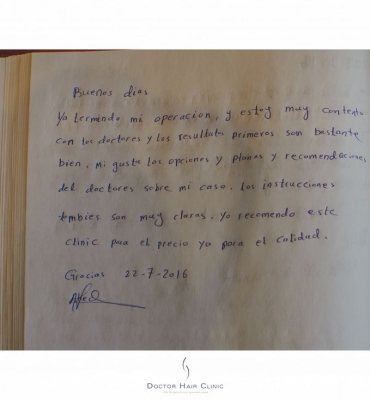 Buenos dias
Ya terminado mi operacion, y estoy muy contento
con los doctores y los resultatos primeros son bastante
bien. Mi gusta los opciones y planes y recomendaciones
del doctores sobre mi caso. Los instrucciones
tembies son muy claras. Yo recomendo este
clinic para el precio ya para el calidad.
Gracias 22-7-2016
DOCTOR HAIR CLINIC